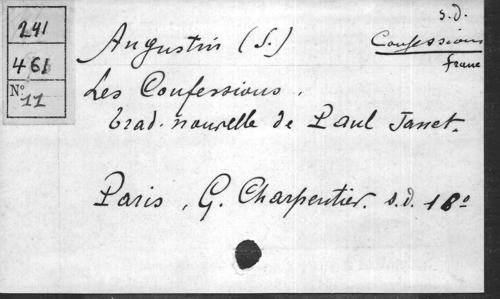 241
461
N° 11
s.d.
Confessions
franc
Augustin (S.)
Les Confessions.
trad. nouvelle de Paul Janet.
Paris, G. Charpentier. s.d. 18°